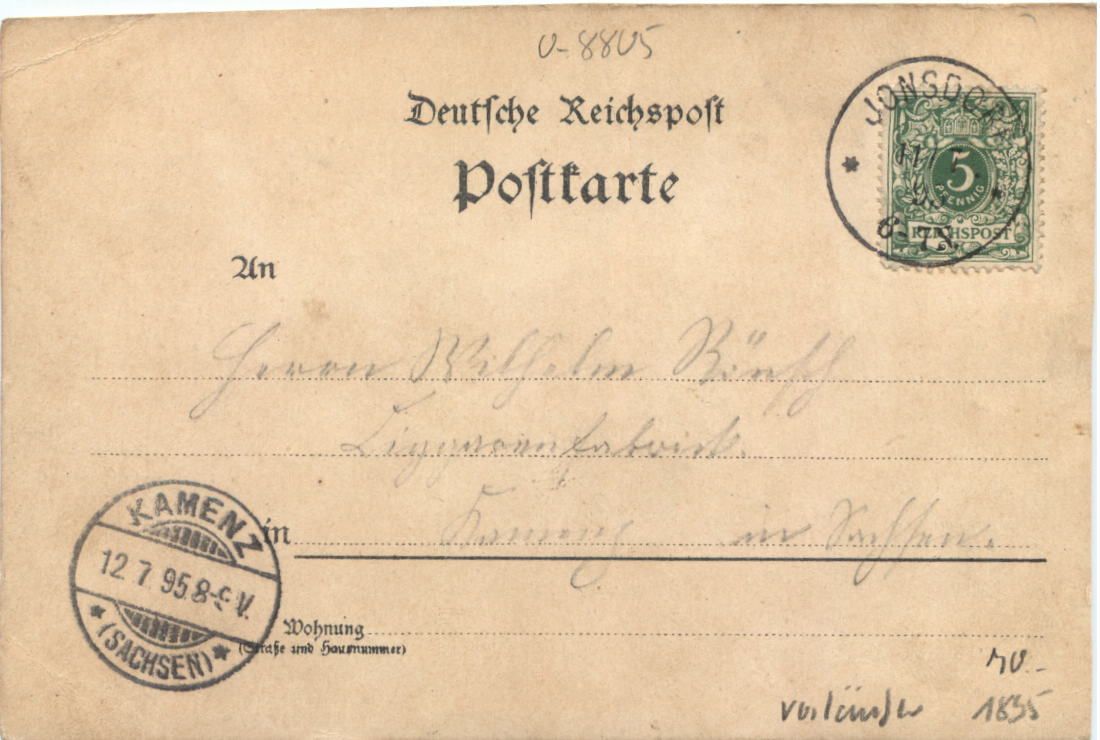 V-8805
Deutsche Reichspost
Postkarte
JONSDORF
11 7
95
6-7N.
5
PFENNIG
REICHSPOST
An
Herrn Wilhelm
Ziggarrenfabrick.
in Kamenz in Sachsen.
KAMENZ
12.7.95.8-9V.
(SACHSEN)
Wohnung
(Straße und Hausnummer)
Vorläufer 1895